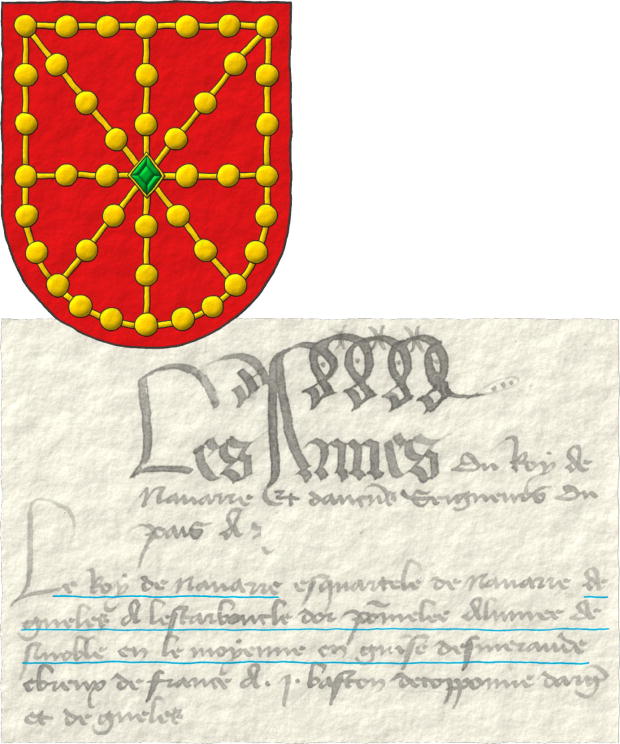 Les Armes du Roy de
Navarre Et dancuns Seigneurs du
pais &
Le Roy de Navarre esquartele de Navarre de
gueles A lescarboucle dor pomelee Alumee de
sinoble en le moyenne en guise desmeraude
ebreux de france A . j . baston decopponne darg
et de gueles